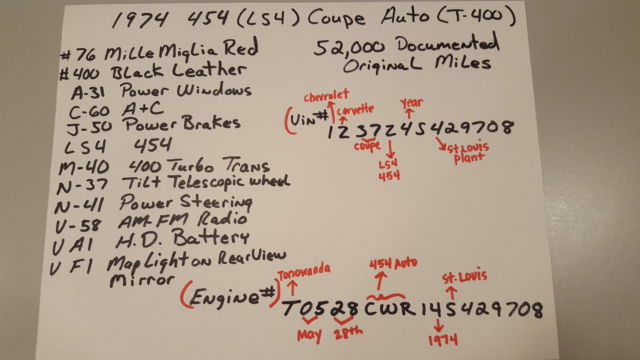 1974 454 (LS4) Coupe Auto (T-400)
#76 Mille Miglia Red
#400 Black Leather
A-31 Power Windows
C-60 A+C
J-50 Power Brakes
LS4 454
M-40 400 Turbo Trans
N-37 Tilt Telescopic wheel
N-41 Power Steering
U-58 AM FM Radio
U A1 H.D. Battery
U F1 Map Light on Rear View
Mirror
52,000 Documented
Original Miles
chevrolet
corvette
year
(Vin#)
1Z37Z4S429708
coupe
LS4
454
St. Louis
plant
Tonowanda
454 Auto
St. Louis
(Engine#)
T0528CWR14S429708
May
28th
1974